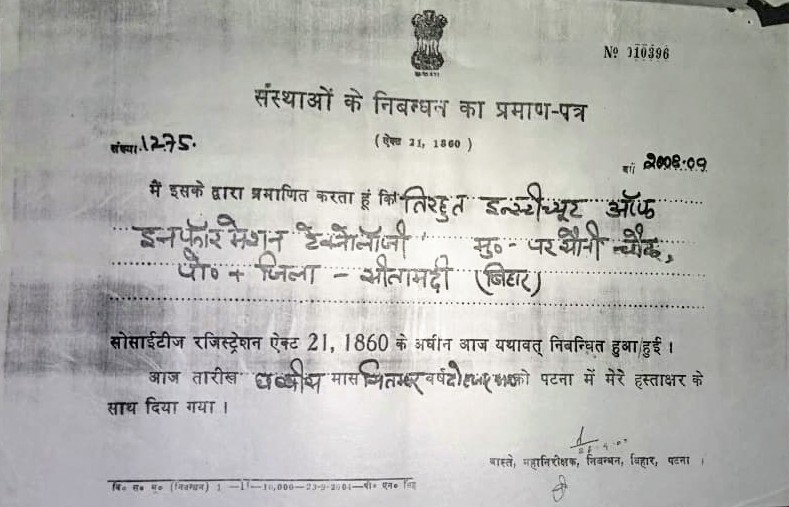 Nº 010396
संस्थाओं के निबन्धन का प्रमाण-पत्र
संख्या.1275.
(ऐक्ट 21, 1860)
वर्ष 2008-09
मैं इसके द्वारा प्रमाणित करता हूं कि तिरहुत इन्स्टीच्यूट ऑफ
इनफॉरमेशन टेक्नोलॉजी मु०- परसौनी चौक,
पो० + जिला - सीतामढ़ी (बिहार)
सोसाईटीज रजिस्ट्रेशन ऐक्ट 21, 1860 के अधीन आज यथावत् निबन्धित हुआ/हुई ।
आज तारीख छब्बीस मास सितम्बर वर्ष दो हजार आठ को पटना में मेरे हस्ताक्षर के
साथ दिया गया ।
वास्ते, महानिरीक्षक, निबन्धन, बिहार, पटना ।
बि० स० मु० (निबन्धन) 1 10,000